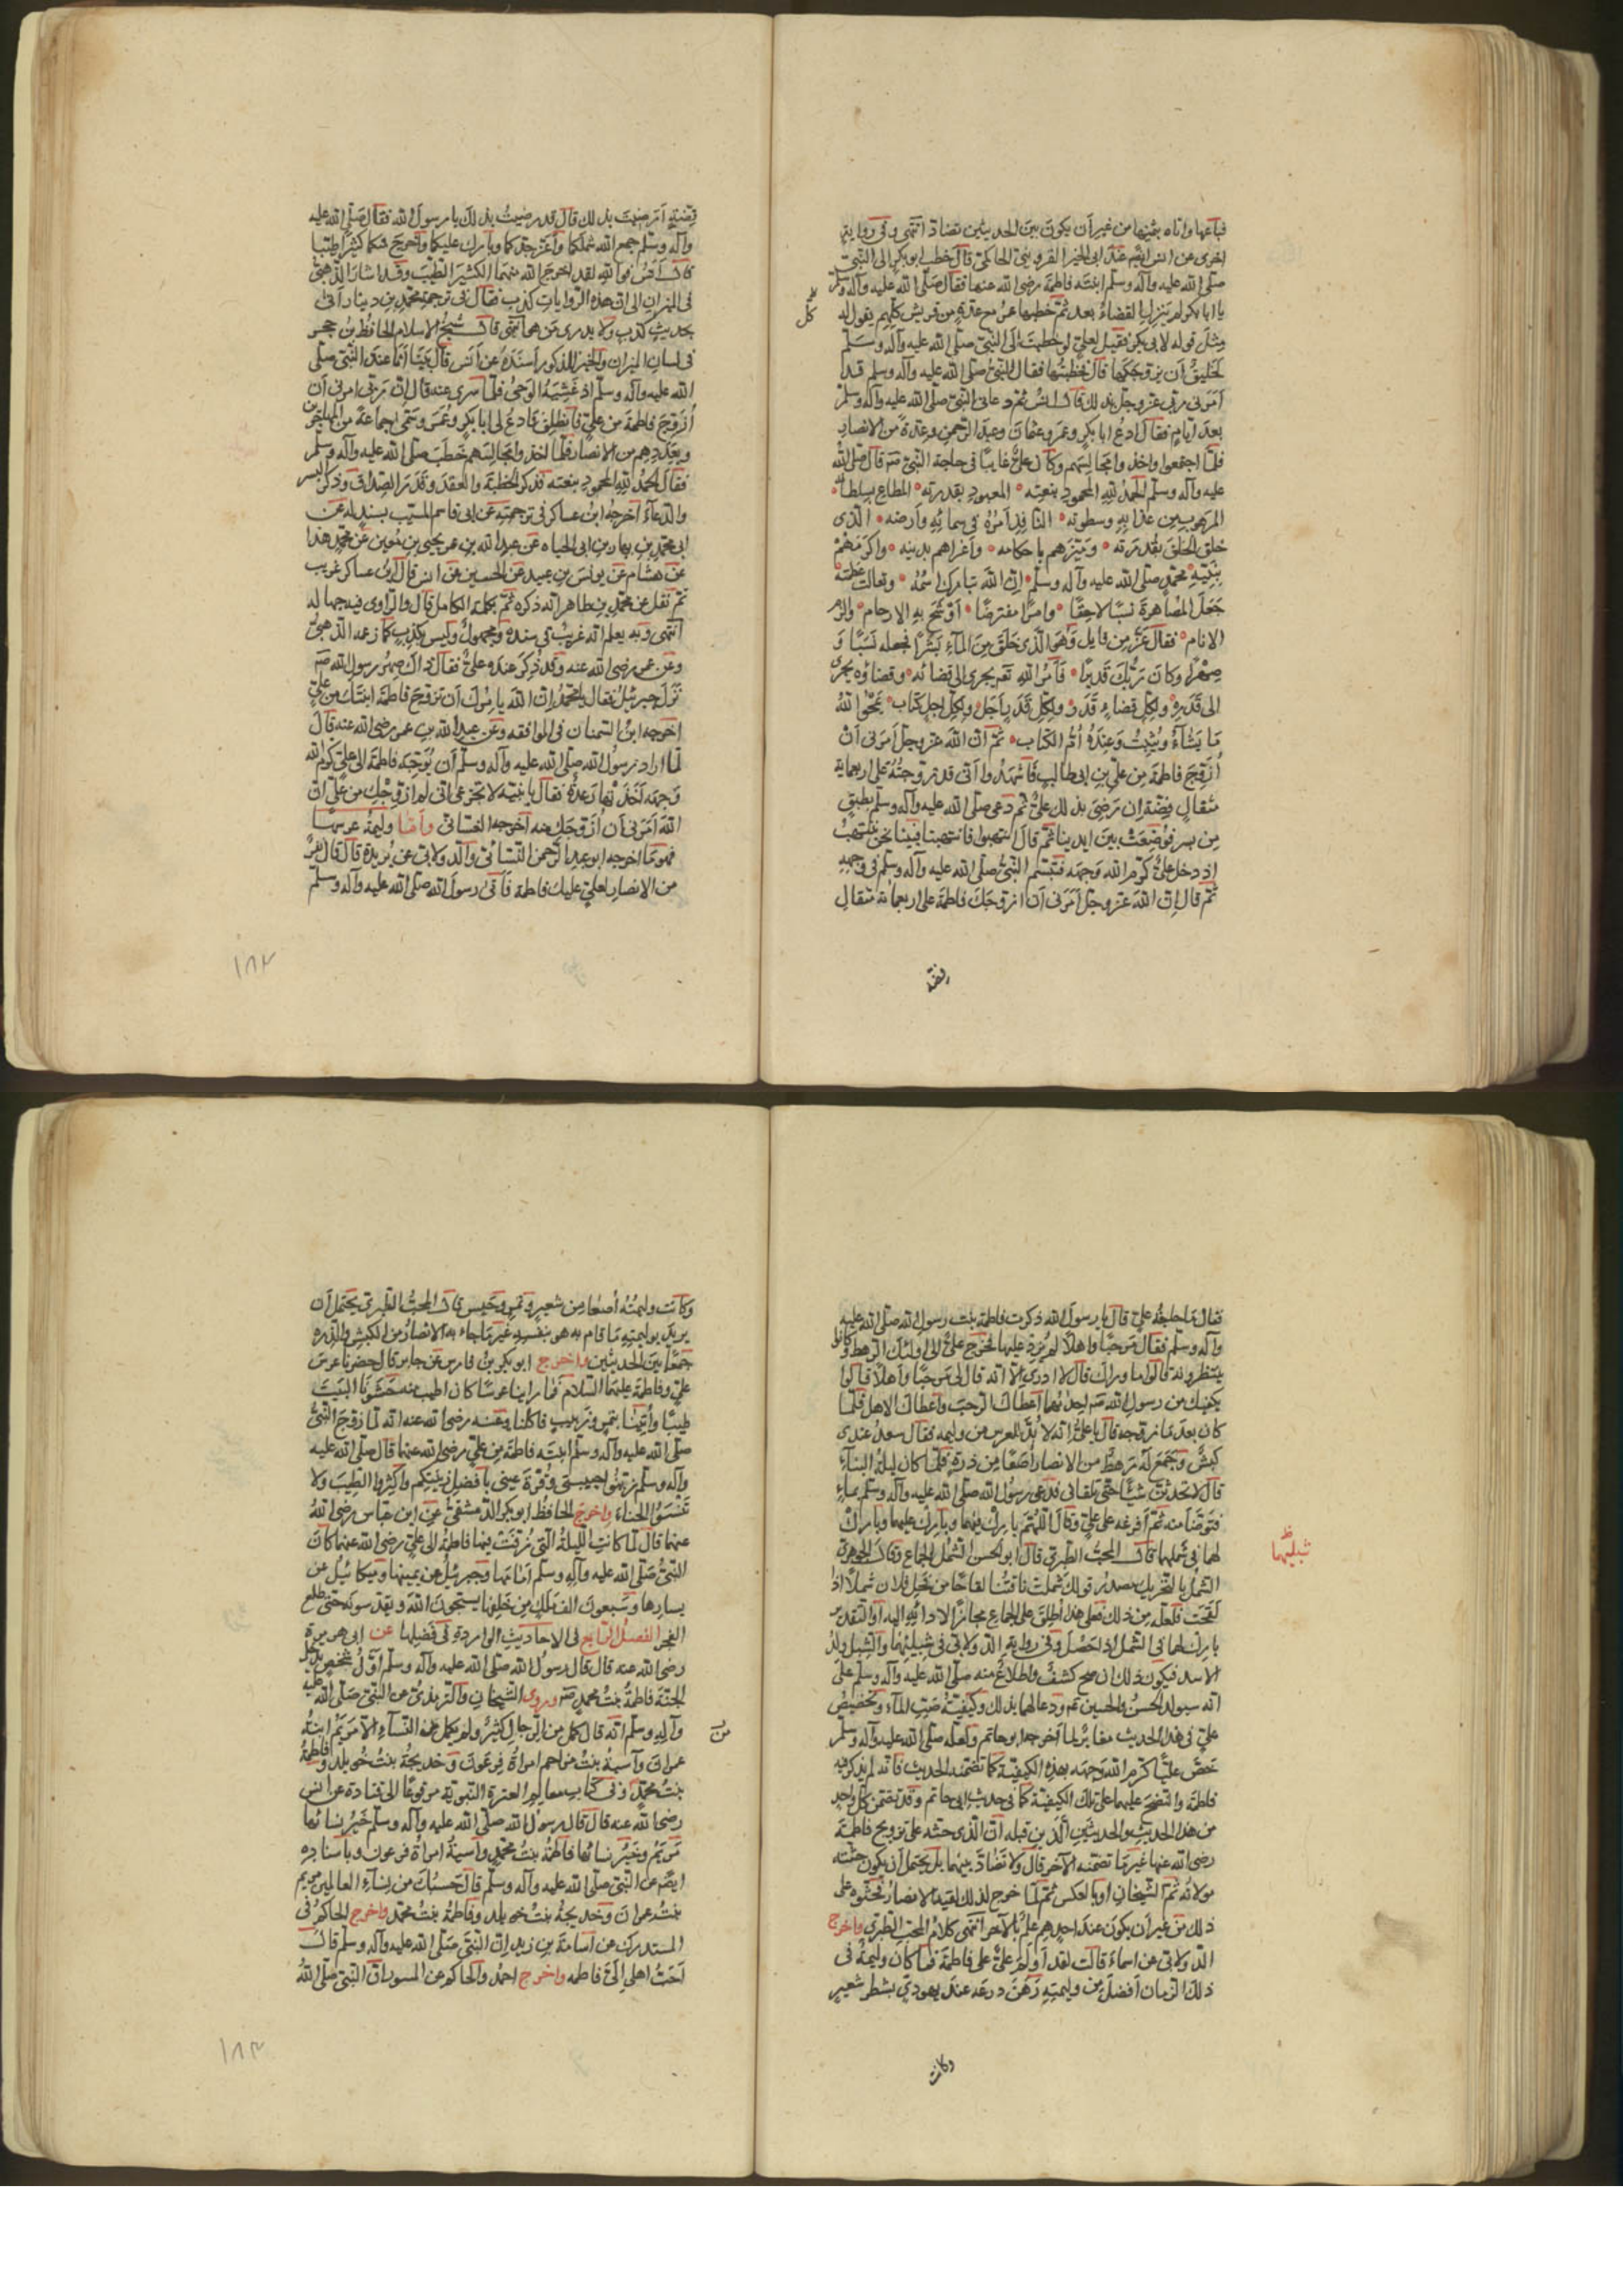 فباعها واتاه بثمنها من غير أن يكون بين الحديثين تضاد انتهى وفى رواية
اخرى عن انس ايضم عند ابى الخير القزوينى الحاكمى قال خطب ابو بكر الى النبى
صلى الله عليه وآله وسلم ابنته فاطمة رضى الله عنها فقال صلى الله عليه وآله وسلم
يا ابا بكر لم ينزل القضاء بعد ثم خطبها عمر مع عدة من قريش كلهم يقول له
مثل قوله لابى بكر فقيل لعلى لو خطبت الى النبى صلى الله عليه وآله وسلم
لخليق أن يزوجكها قال فخطبتها فقال النبى صلى الله عليه وآله وسلم قد
أمرنى ربى عز وجل بذلك قال انس ثم دعانى النبى صلى الله عليه وآله وسلم
بعد أيام فقال ادع ابا بكر وعمر وعثمان وعبد الرحمن وعدة من الانصار
فلما اجتمعوا واخذوا مجالسهم وكان على غايبا فى حاجة النبى صم قال صلى الله
عليه وآله وسلم الحمد لله المحمود بنعمته المعبود بقدرته المطاع بسلطانه
المرهوب من عذابه وسطوته النافذ أمره فى سمائه وأرضه الذى
خلق الخلق بقدرته وميزهم باحكامه وأعزاهم بدينه واكرمهم
بنبيه محمد صلى الله عليه وآله وسلم إن الله تبارك اسمه وتعالت عظمته
جعل المصاهرة نسبا لاحقا وامرا مفترضا أوشج به الارحام والزم
الانام فقال عز من قايل وهو الذى خلق من الماء بشرا فجعله نسبا و
صهرا وكان ربك قديرا فأمر الله تعم يجرى الى قضائه وقضاؤه يجرى
الى قدره ولكل قضاء قدر ولكل قدر أجل ولكل اجل كتاب يمحوا الله
ما يشاء ويثبت وعنده أم الكتاب ثم ان الله عز وجل أمرنى أن
أزوج فاطمة من على بن ابى طالب فأشهدوا أنى قد زوجته على اربعماية
مثقال فضة إن رضى بذلك على ثم دعى صلى الله عليه وآله وسلم بطبق
من بسر فوضعت بين ايدينا ثم قال انتهبوا فانتهبنا فبينا نحن ننتهب
اذ دخل على كرم الله وجهه فتبسم النبى صلى الله عليه وآله وسلم فى وجهه
ثم قال إن الله عز وجل أمرنى أن ازوجك فاطمة على اربعماية مثقال
فضة
فضة أرضيت بذلك قال قد رضيت بذلك يا رسول الله فقال صلى الله عليه
وآله وسلم جمع الله شملكما وأعز جدكما وبارك عليكما وأخرج منكما كثيرا طيبا
قال أنس فوالله لقد اخرج الله منهما الكثير الطيب وقد اشار الذهبى
فى الميزان الى ان هذه الروايات كذب فقال فى ترجمة محمد بن دينار أتى
بحديث كذب ولا يدرى من هو انتهى قال شيخ الاسلام الحافظ بن حجر
فى لسان الميزان والخبر المذكور أسنده عن أنس قال بينا أنا عند النبى صلى
الله عليه وآله وسلم اذ غشيه الوحى فلما سرى عنه قال ان ربى امرنى أن
أزوج فاطمة من على فانطلق فادع لى ابا بكر وعمر وسمى جماعة من المهاجرين
وبعددهم من الانصار فلما اخذوا مجالسهم خطب صلى الله عليه وآله وسلم
فقال الحمد لله المحمود بنعمته فذكر الخطبة والعقد وقدر الصداق وذكر البسر
والدعاء أخرجه ابن عساكر فى ترجمته عن ابى قاسم النسيب بسند له عن
ابى محمد بن بهار بن ابى الحياه عن عبد الله بن عمر يحيى بن معين عن محمد هذا
عن هشام عن يونس بن عبيد عن الحسين عن انس قال ابن عساكر غريب
ثم نقل عن محمد بن طاهر انه ذكره ثم تكملة الكامل قال والراوى فيه جهالة
انتهى وبه يعلم انه غريب فى سنده مجهول وليس بكذب كما زعمه الذهبى
وعن عمر رضى الله عنه وقد ذكر عنده على فقال ذاك صهر رسول الله صم
نزل جبرئيل فقال يا محمد ان الله يامرك أن تزوج فاطمة ابنتك من على
اخرجه ابن السمان فى الموافقه وعن عبد الله بن عمر رضى الله عنه قال
لما اراد رسول الله صلى الله عليه وآله وسلم أن يوجه فاطمة الى على كرم الله
وجهه أخذتها رعدة فقال يا بنية لا تجزعى انى لم ازوجك من على ان
الله أمرنى أن أزوجك منه اخرجه الغسانى وأما وليمة عرسها
فهو ما اخرجه ابو عبد الرحمن النسائى والدولابى عن بريدة قال قال نفر
من الانصار لعلى عليك فاطمة فأتى رسول الله صلى الله عليه وآله وسلم
١٨٢
فقال ما حاجة على قال يا رسول الله ذكرت فاطمة بنت رسول الله صلى الله عليه
وآله وسلم فقال مرحبا واهلا لم يزد عليها فخرج على الى اولئك الرهط وكانوا
ينتظرونه قالوا ما وراك قال لا ادرى الا انه قال لى مرحبا وأهلا قالوا
يكفيك من رسول الله صم احديهما أعطاك الرحب واعطاك الاهل فلما
كان بعد ما زوجه قال يا على انه لا بد للعرس من وليمه فقال سعد عندى
كبش وجمع له رهط من الانصار أصعا من ذرة فلما كان ليلة البناء
قال لا تحدث شيئا حتى تلقانى فدعى رسول الله صلى الله عليه وآله وسلم بماء
فتوضأ منه ثم أفرغه على على وقال اللهم بارك فيهما وبارك عليهما وبارك
لهما فى شملهما قال المحب الطبرى قال ابو الحسن الشمل الجماع وقال الجوهرى
الشمل بالتحريك مصدر قولك شملت ناقتنا لقاحا من فحل فلان شملا اذا
لقحت فلعله من ذلك فعلى هذا أطلق على الجماع مجازا لادائه اليه او التقدير
بارك لهما فى الشمل اذا حصل وفى رواية الدولابى فى شبليهما والشبل ولد
الاسد فيكون ذلك ان صح كشف واطلاع منه صلى الله عليه وآله وسلم على
انه سيولد الحسن والحسين ثم ودعا لهما بذلك وكيفية صب الماء وتخصيص
على فى هذا الحديث مغاير لما أخرجه ابو حاتم ولعله صلى الله عليه وآله وسلم
خص عليا كرم الله وجهه بهذه الكيفية كما تضمنه الحديث فانه لم يذكر فيه
فاطمة والنضح عليهما على تلك الكيفية كما فى حديث ابى حاتم وقد تضمن كل واحد
من هذا الحديث والحديثين الذين قبله ان الذى حثه على تزويج فاطمة
رضى الله عنها غير ما تضمنه الآخر قال ولا تضاد بينهما بل يحتمل أن يكون حثته
مولاته ثم الشيخان او بالعكس ثم لما خرج لذلك لقيه الانصار فحثوه على
ذلك من غير أن يكون عند احدهم علم بالآخر انتهى كلام المحب الطبرى واخرج
الدولابى عن اسماء قالت لقد أولم على على فاطمة فما كان وليمة فى
ذلك الزمان أفضل من وليمته رهن درعه عند يهودى بشطر شعير
شبليهما
وكانت
وكانت وليمته أصعا من شعير وتمر وحيس قال المحب الطبرى يحتمل أن
يريد بوليمته ما قام به هو بنفسه غير ما جاء به الانصار من الكبش والذره
جمعا بين الحديثين واخرج ابو بكر بن فارس عن جابر قال حضرنا عرس
على وفاطمة عليهما السلام فما راينا عرسا كان اطيب منه حشونا البيت
طيبا وأتينا بتمر وزبيب فاكلنا وعنه رضى الله عنه انه لما زوج النبى
صلى الله عليه وآله وسلم ابنته فاطمة من على رضى الله عنهما قال صلى الله عليه
وآله وسلم زينوا حبيبتى وقرة عينى بافضل زينتكم واكثروا الطيب ولا
تنسوا الحناء واخرج الحافظ ابو بكر الدمشقى عن ابن عباس رضى الله
عنهما قال لما كانت الليلة التى زفت فيها فاطمة الى على رضى الله عنهما كان
النبى صلى الله عليه وآله وسلم أمامها وجبرئيل عن يمينها وميكائيل عن
يسارها وسبعون الف ملك من خلفها يسبحون الله ويقدسونه حتى طلع
الفجر الفصل الرابع فى الاحاديث الواردة فى فضلها عن ابى هريرة
رضى الله عنه قال قال رسول الله صلى الله عليه وآله وسلم أول شخص يدخل
الجنة فاطمة بنت محمد صم وروى الشيخان والترمذى عن النبى صلى الله عليه
وآله وسلم انه قال كمل من الرجال كثير ولم يكمل من النساء الا مريم ابنة
عمران وآسية بنت مزاحم امراة فرعون وخديجة بنت خويلد وفاطمة
بنت محمد وفى كتاب معالم العترة النبوية مرفوعا الى قتادة عن انس
رضى الله عنه قال قال رسول الله صلى الله عليه وآله وسلم خير نسائها
مريم وخير نسائها فاطمة بنت محمد وآسية امراة فرعون وباسناده
ايضم عن النبى صلى الله عليه وآله وسلم قال حسبك من نساء العالمين مريم
بنت عمران وخديجة بنت خويلد وفاطمة بنت محمد واخرج الحاكم فى
المستدرك عن أسامة بن زيد ان النبى صلى الله عليه وآله وسلم قال
أحب اهلى الى فاطمه واخرج احمد والحاكم عن المسور ان النبى صلى الله
من
١٨٣